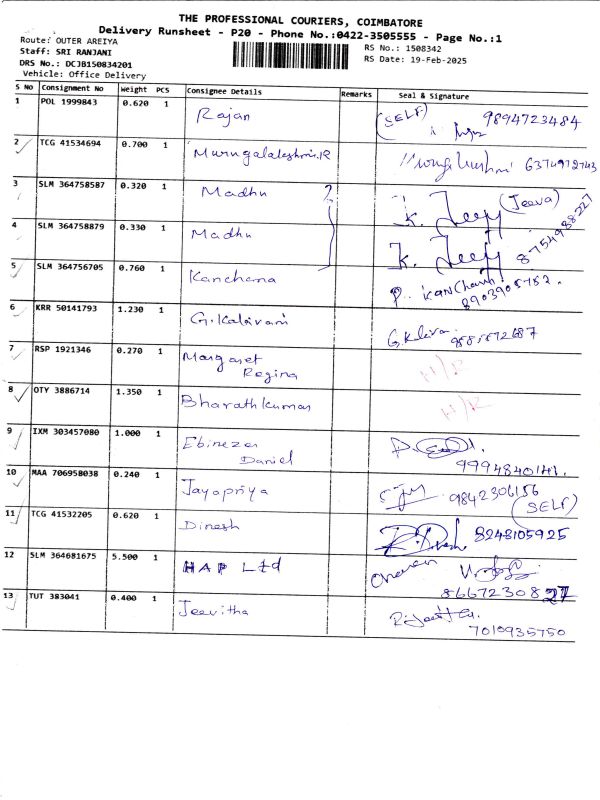 THE PROFESSIONAL COURIERS, COIMBATORE
Delivery Runsheet - P20 - Phone No.:0422-3505555 - Page No.:1
Route: OUTER AREIYA
RS No.: 1508342
Staff: SRI RANJANI
RS Date: 19-Feb-2025
DRS No.: DCJB150834201
Vehicle: Office Delivery
S No Consignment No Weight PCS Consignee Details Remarks Seal & Signature
1 POL 1999843 0.620 1 Rajan (SELF) 9894723484
2 TCG 41534694 0.700 1 Murugalakshmi.R
3 SLM 364758587 0.320 1 Madhu K. Jeey (Jeeva)
4 SLM 364758879 0.330 1 Madhu K. Jeey 8754988227
5 SLM 364756705 0.760 1 Kanchana P. Kanchana
8903905752.
6 KRR 50141793 1.230 1 G.Kalaivani
7 RSP 1921346 0.270 1 Margaret
Regina
8 OTY 3886714 1.350 1 Bharathkumar
9 IXM 303457080 1.000 1 Ebinezer
Daniel
9994840141.
10 MAA 706958038 0.240 1 Jayapriya 9842306156
11 TCG 41532205 0.620 1 Dinesh (SELF)
8248105925
12 SLM 364681675 5.500 1 HAP Ltd
8667230827
13 TUT 383041 0.400 1 Jeevitha
7010935750